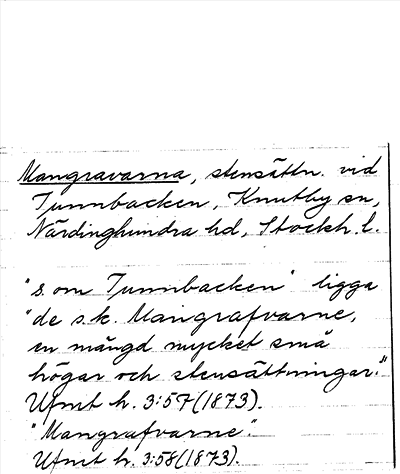 Mangravarna, stensättn. vid
Tunnbacken, Knutby sn,
Närdinghundra hd, Stockh. l.
"s. om Tunnbacken" ligga
"de s.k. Mangrafvarne,
en mängd mycket små
högar och stensättningar."
Ufmt h. 3:57 (1873).
"Mangrafvarne".
Ufmt h. 3:58 (1873).